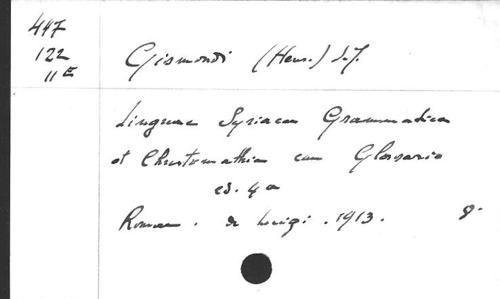 447
122
11E
Gismondi (Henr.) S.J.
Linguae Syriacae Grammatica
et Chrestomathia cum Glossario
ed. 4a
Romae . de Luigi . 1913. 8.